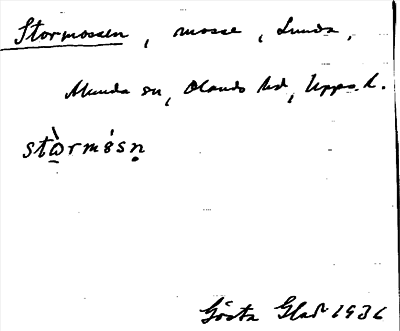 Stormossen, mosse, Lunda,
Munda sn, Olands hd, Upps. l.
stὼrmósn̥
Gösta Glad 1936